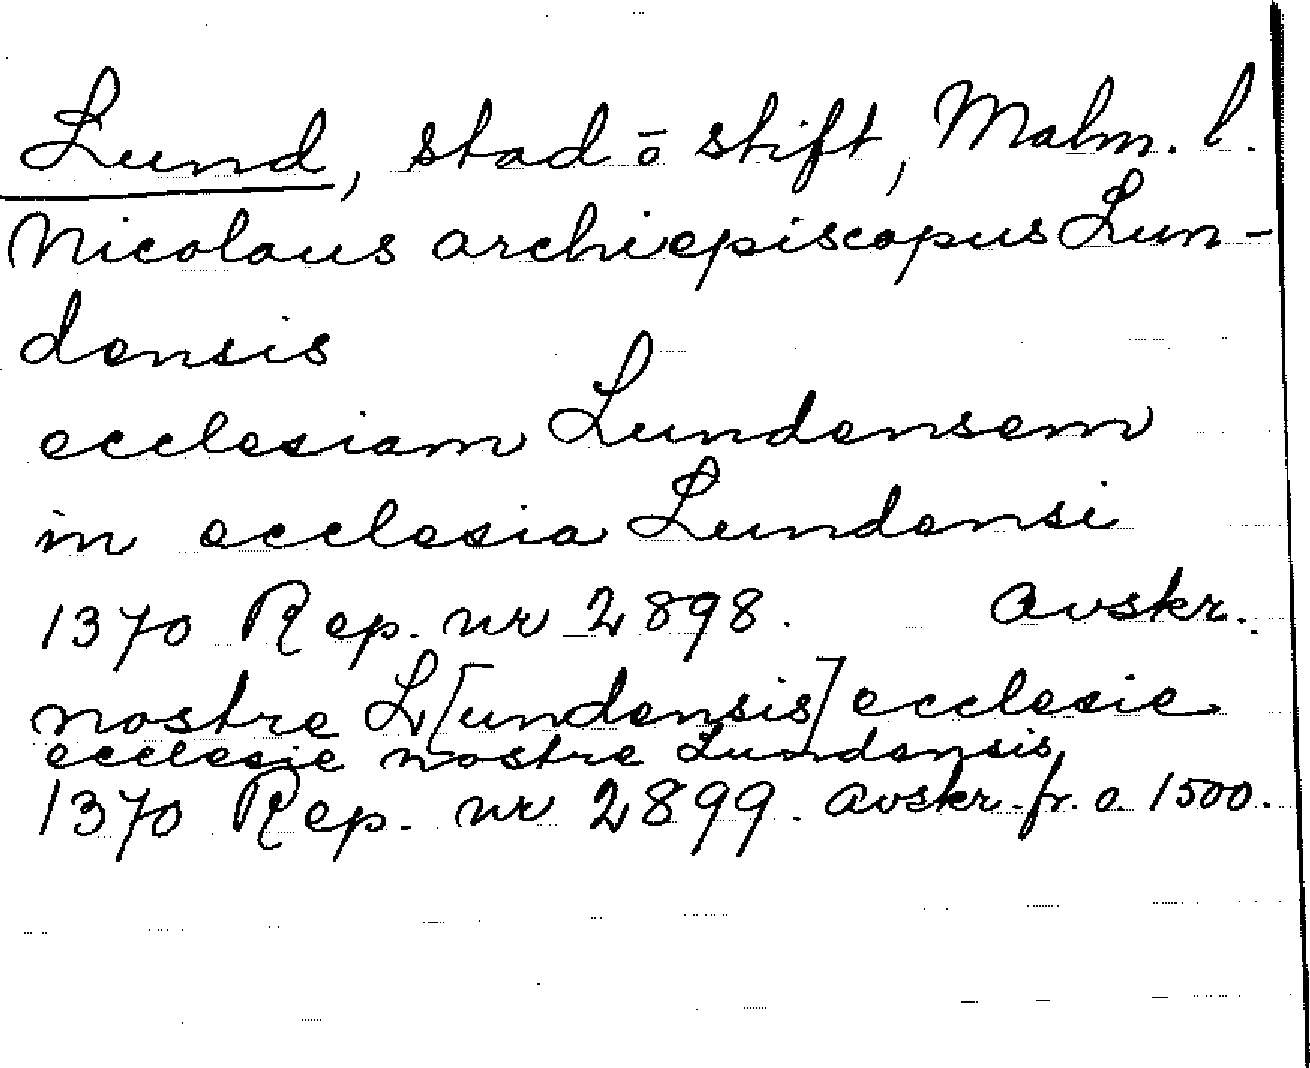 Lund, stad o stift, Malm. l.
Nicolaus archiepiscopus Lun-
densis
ecclesiam Lundensem
in ecclesia Lundensi
1370 Rep. nr 2898. Avskr.
nostre L[undensis] ecclesie
ecclesie nostre Lundensis
1370 Rep. nr 2899. Avskr. fr. o. 1500.